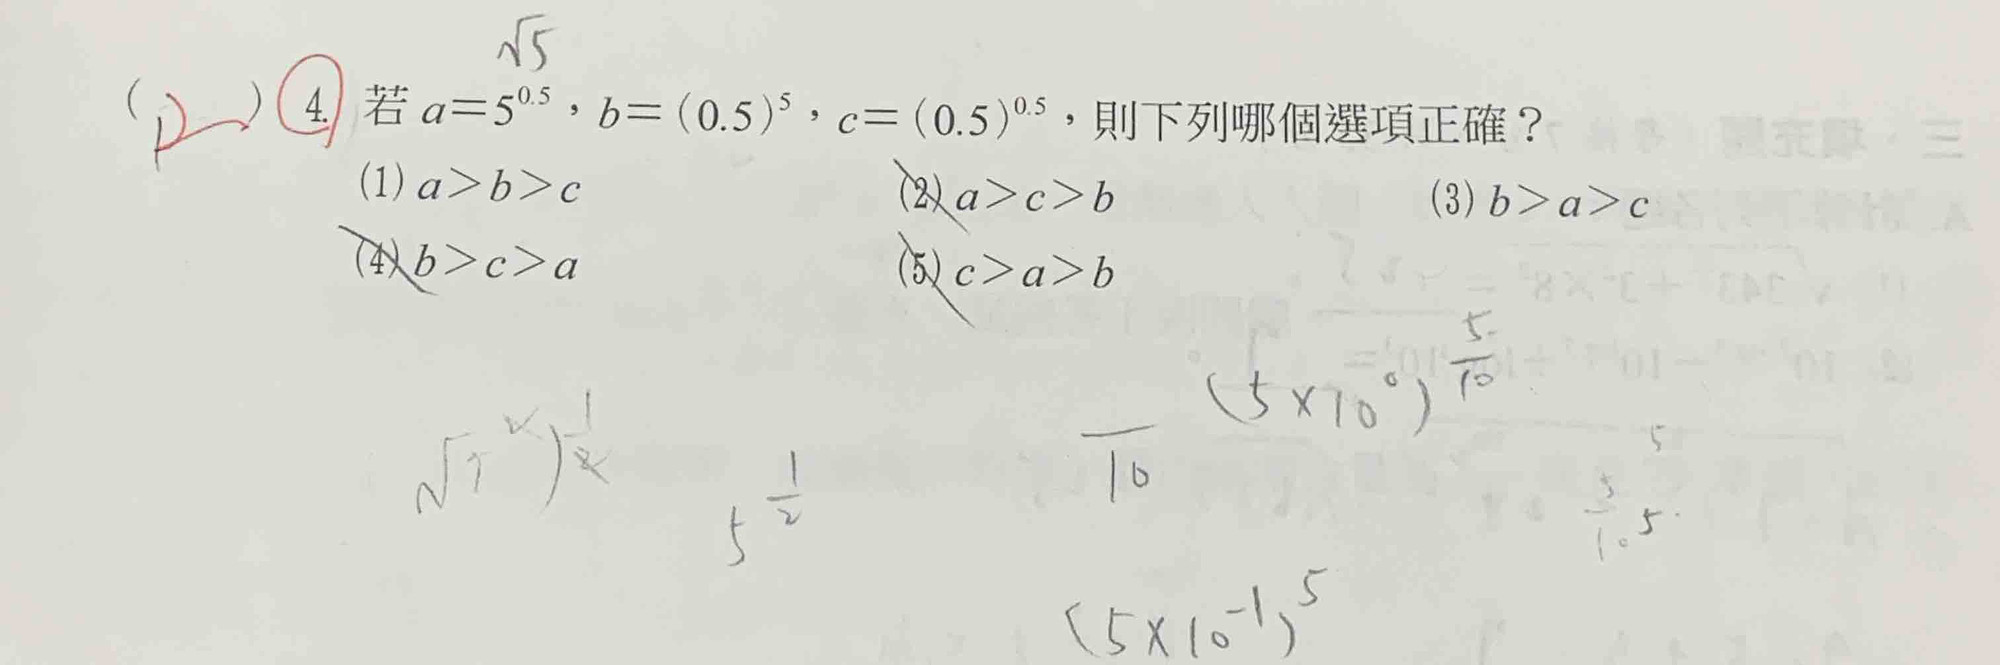 √5
( ) 4. 若 a=5^0.5，b=(0.5)^5，c=(0.5)^0.5，則下列哪個選項正確？
(1) a>b>c (2) a>c>b (3) b>a>c
(4) b>c>a (5) c>a>b
(5×10^0)^5/10
5^1/2
10
5/10 5
(5×10^-1)^5